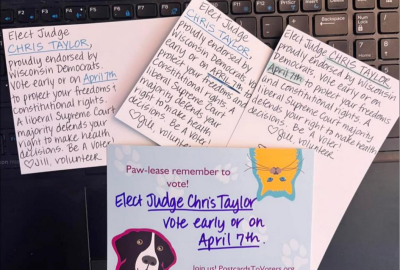 Elect Judge
CHRIS TAYLOR,
proudly endorsed by
Wisconsin Democrats.
Vote early or on April 7th
to protect your freedoms &
constitutional rights.
A liberal Supreme Court
majority defends your
right to make health
decisions. Be a Voter!
Jill, volunteer
Elect Judge
CHRIS TAYLOR,
proudly endorsed by
Wisconsin Democrats.
early or on April 7th
to protect your freedoms and
Constitutional rights. A
liberal Supreme Court
majority defends your
right to make health
decisions. Be a Voter!
Jill, volunteer
Elect Judge CHRIS TAYLOR
proudly endorsed by Wisconsin
Democrats. Vote early or on
April 7th to protect your freedoms
and Constitutional rights. A
liberal Supreme Court majority
defends your right to make health
decisions. Be a Voter!
Jill, volunteer
Paw-lease remember to
vote!
Elect Judge Chris Taylor
vote early or on
April 7th.
Join us! PostcardsToVoters.org